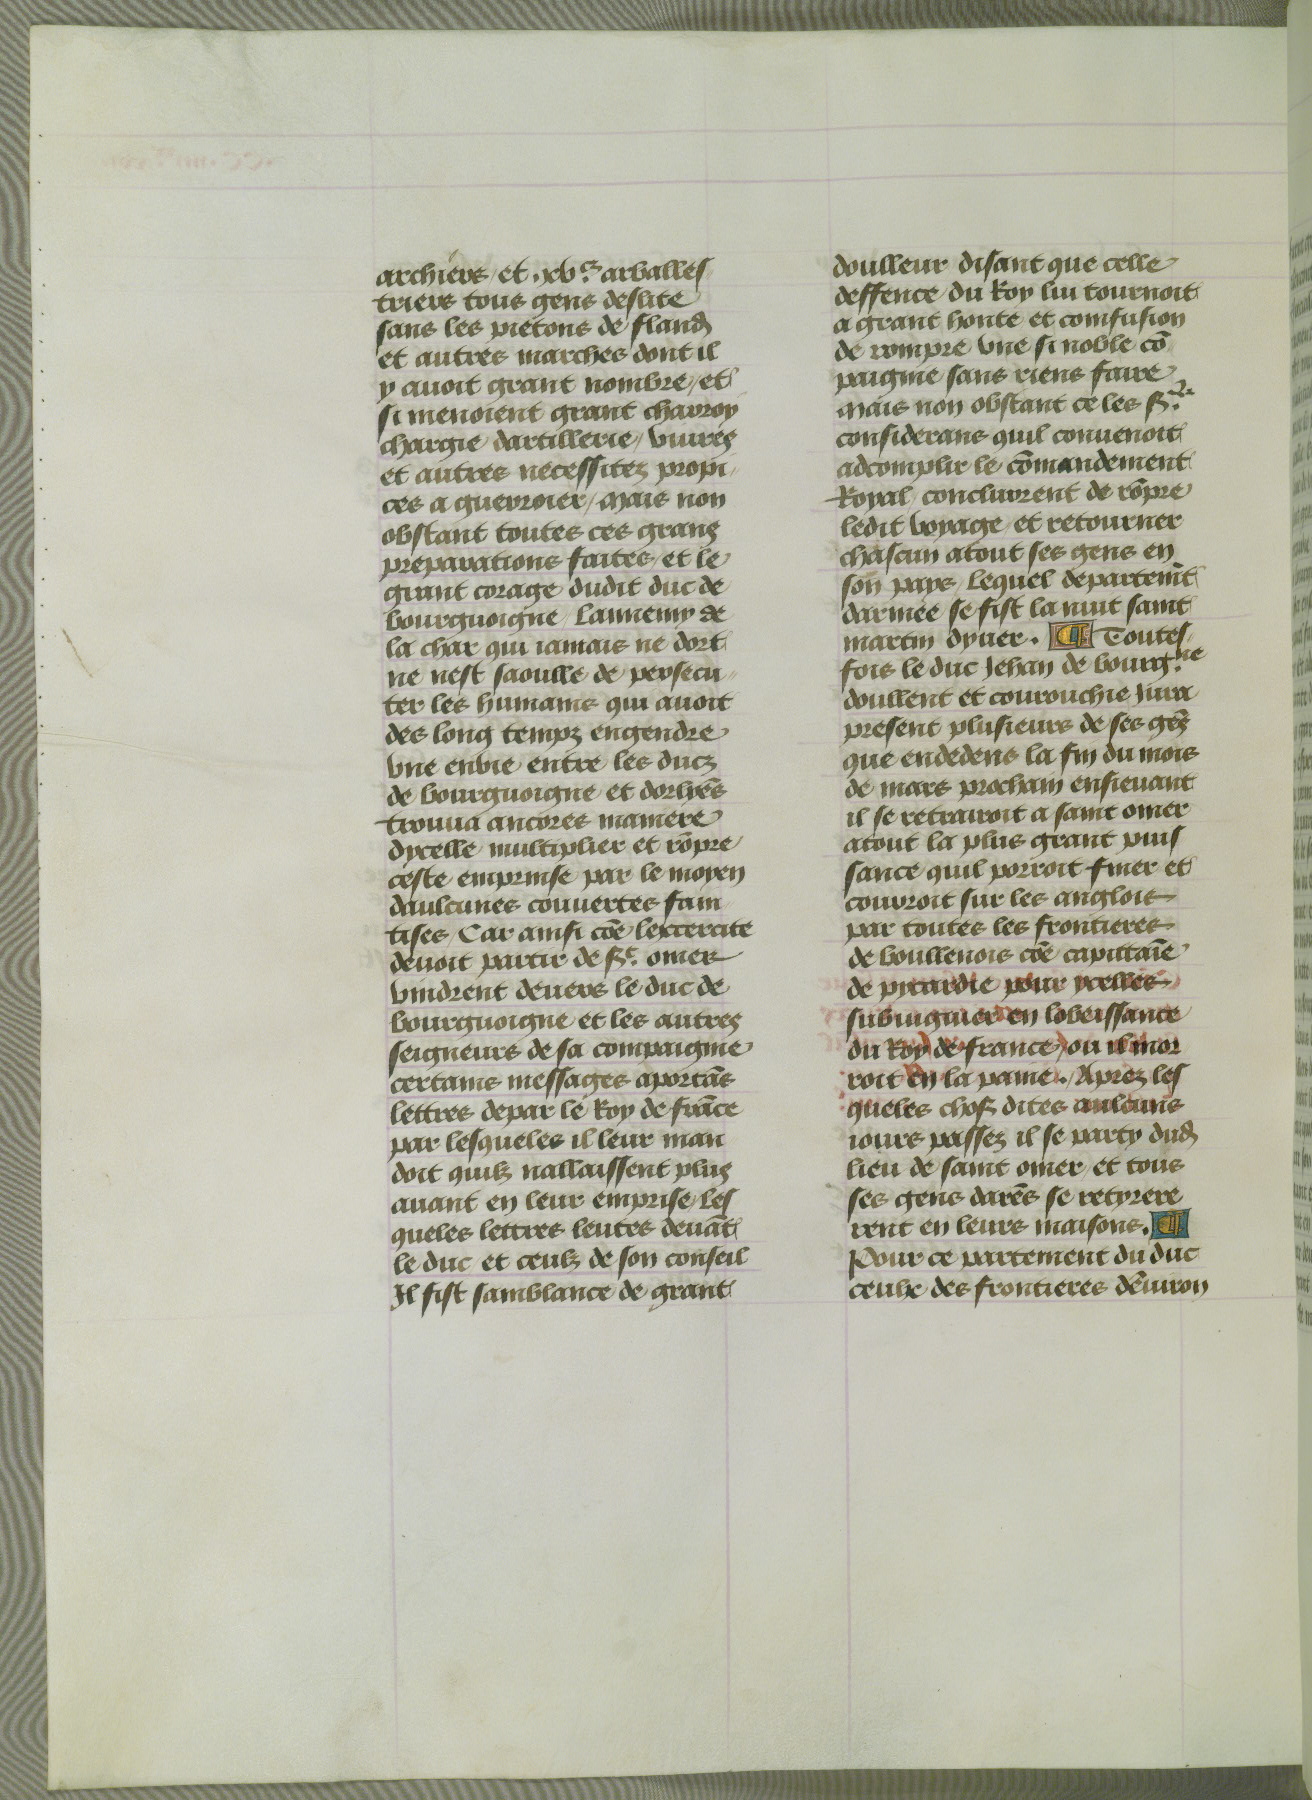 archiers / et .xvᶜ. arballes
triers tous gens deslite
sans les pietons de fland
et autres marches dont il
y auoit grant nombre / et
si menoient grant charroy
chargie dartillerie / viures
et autres necessitez propi
ces a guerroier / Mais non
obstant toutes ces grans
preparations faites / et le
grant corage dudit duc de
bourguoigne / Lannemy de
la char qui iamais ne dort
ne nest saoulle de persecu
ter les humains qui auoit
des long temps engendre
vne enuie entre les ducz
de bourguoigne et dorlie̅s
trouua ancores maniere
dycelle multiplier et ro̅pre
ceste emprinse par le moyen
daulcunes couuertes fain
tises / Car ainsi co̅e lexcercite
deuoit partir de st. omer
vindrent deuers le duc de
bourguoigne et les autres
seigneurs de sa compaignie
certains messages aporta̅s
lettres depar le Roy de fra̅ce
par lesqueles il leur man
doit quilz nallaissent plus
auant en leur emprise / les
queles lettres leutes deua̅t
le duc et ceulz de son conseil
Il fist samblance de grant
doulleur disant que celle
deffence du Roy lui tournoit
a grant honte et comfusion
de rompre vne si noble co̅
paignie sans riens faire
Mais non obstant ce les sʳˢ
considerans quil conuenoit
adcomplir le co̅mandement
Royal / conclurrent de ro̅pre
ledit voyage et retourner
chascun atout ses gens en
son pays / Lequel departem̅t
darmee se fist la nuit saint
martin dyuer . ¶ Toutes
fois le duc Jehan de bourgⁿᵉ
doullent et courouchie Jura
present plusieurs de ses ge̅s
que endedens la fin du mois
de mars prochain ensieuant
il se retrairoit a saint omer
atout la plus grant puis
sance quil porroit finer et
courroit sur les anglois
par toutes les frontieres
de boullenois co̅e capitai̅e
de pycardie pour ycelles
subiuguier en lobeissance
du Roy de france / ou il mor
roit en la paine . Aprez les
queles chos̅ dites aulcuns
iours passez il se party dud
lieu de saint omer / et tous
ses gens dare̅s se retyrere
rent en leurs maisons . ¶
Pour ce partement du duc
ceulx des frontieres de̅uiron